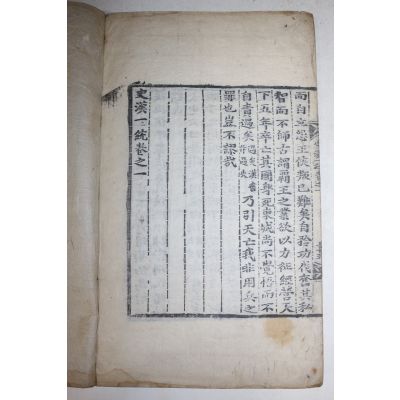 而自立怨王侯叛己難矣自矜功伐奮其私
智而不師古謂霸王之業欲以力征經營天
下五年卒亡其國身死東城尚不覺悟而不
自責過矣 過矣漢書 乃引天亡我非用兵之
罪也豈不謬哉
史漢一統卷之一